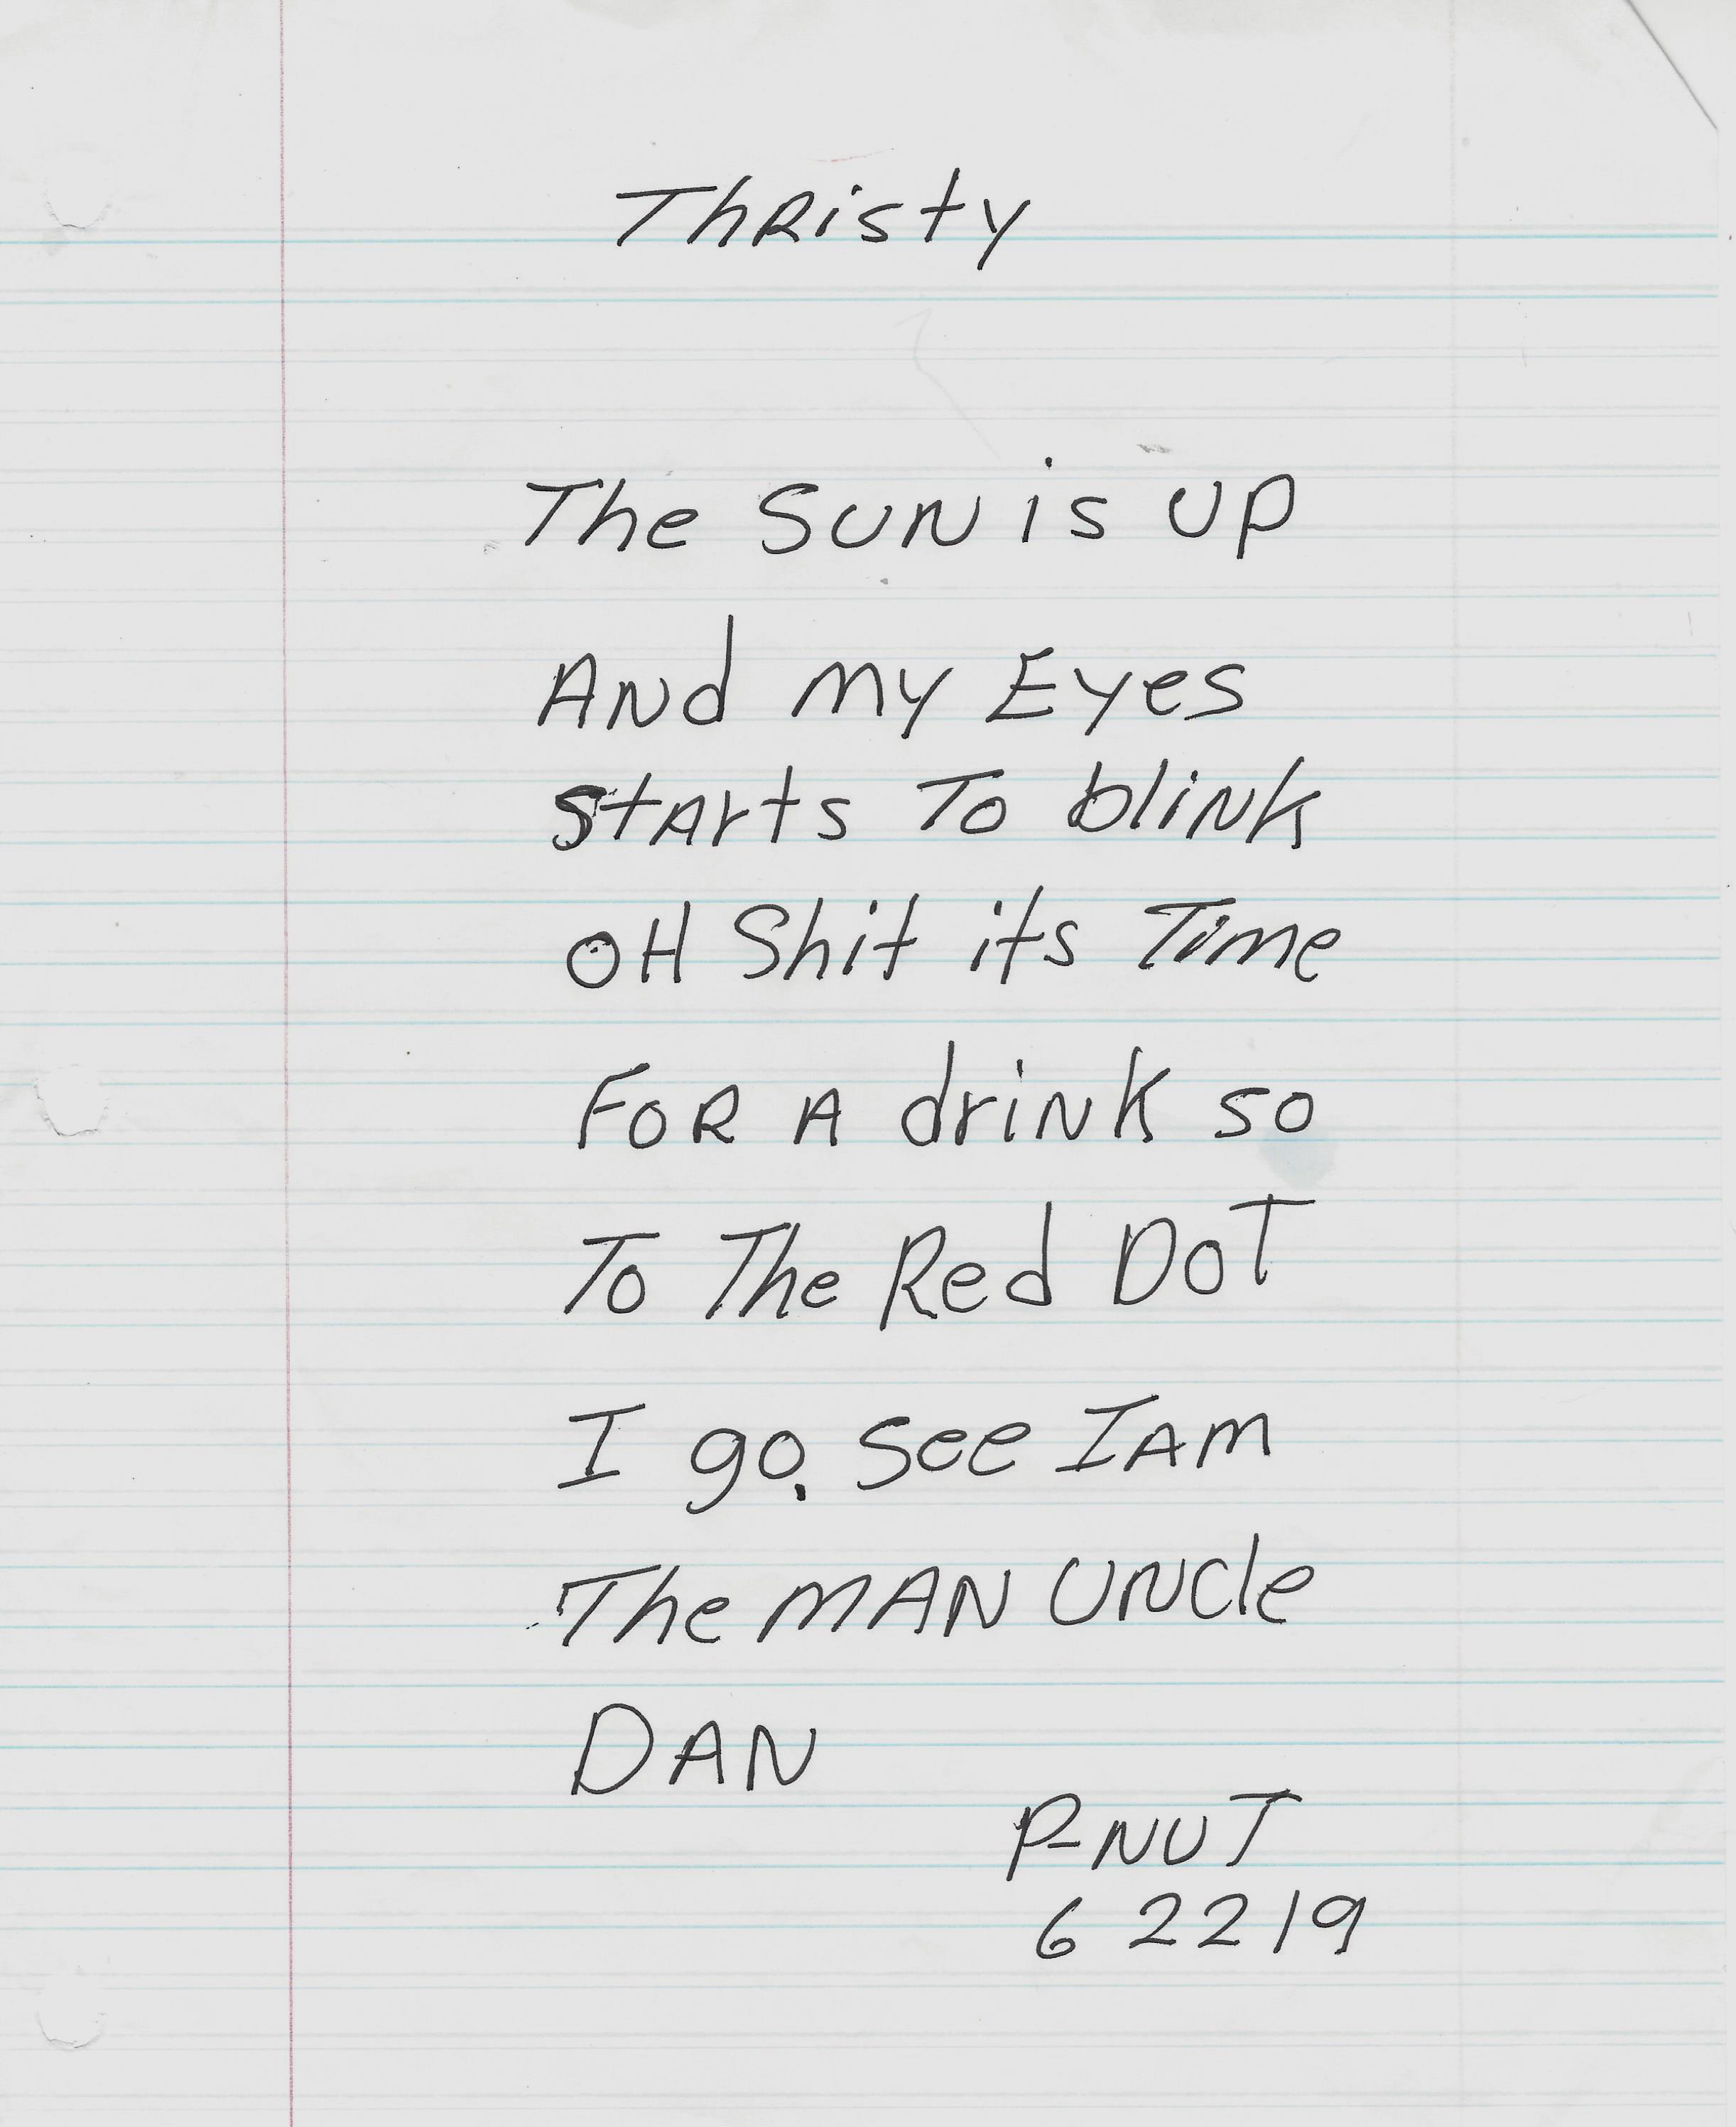 ThRisty
The SUN is up
ANd my Eyes
stArts To blink
OH Shit its Time
FOR A driNk so
To The Red DOT
I go. See I Am
The MAN UNcle
DAN
P-NUT
6 22 19